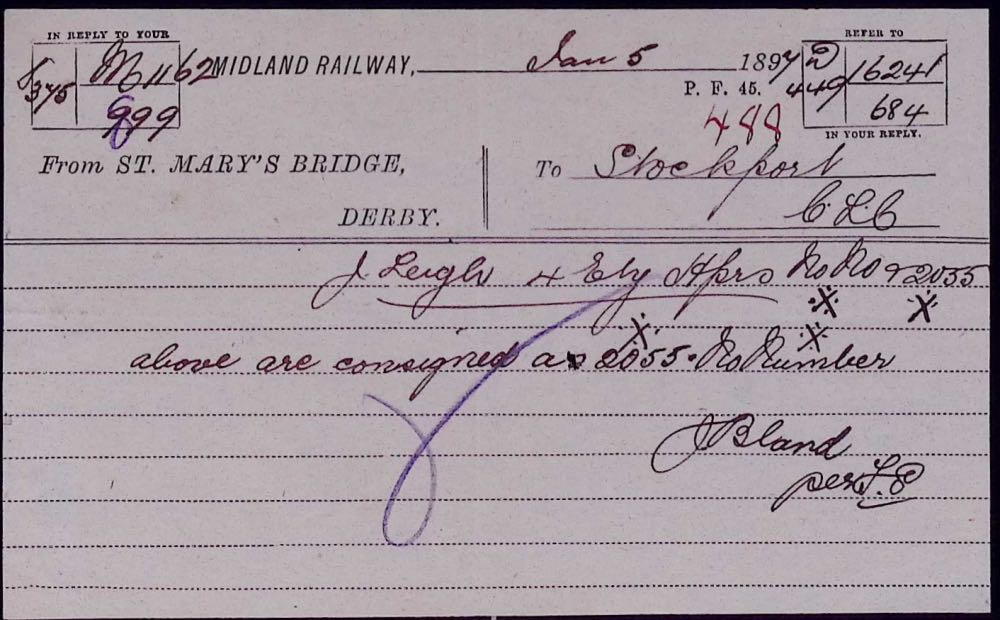 IN REPLY TO YOUR
REFER TO
S
375
M 1162
899
MIDLAND RAILWAY, Jan 5 1897
D
449
16241
684
P. F. 45.
488
IN YOUR REPLY.
From ST. MARY'S BRIDGE,
DERBY.
To Stockport
C.L.C
J. Leigh 4 Ety Hprs No No & 2055
above are consigned as 2055. No Number
J Bland
per